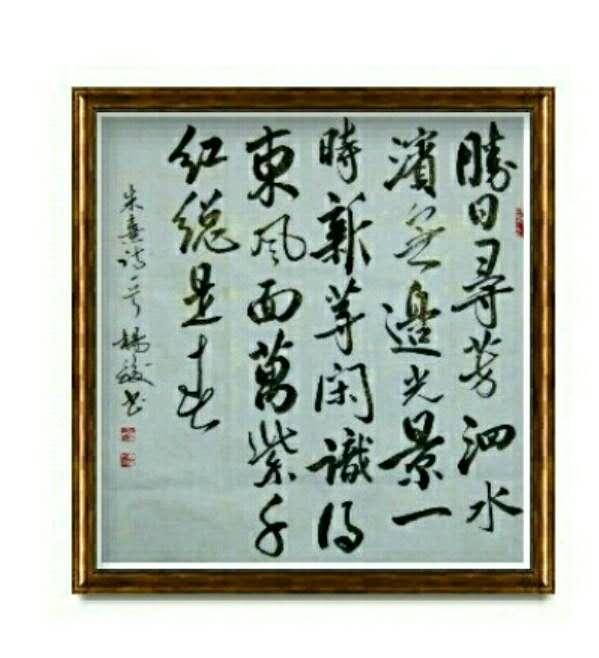 勝日尋芳泗水
濱無邊光景一
時新等閑識得
東風面萬紫千
紅總是春
朱熹詩一首 楊